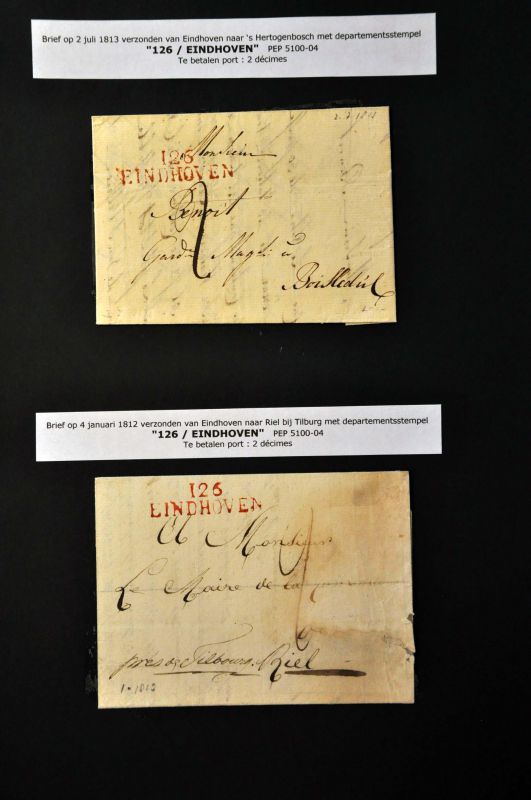 Brief op 2 juli 1813 verzonden van Eindhoven naar 's Hertogenbosch met departementsstempel
"126 / EINDHOVEN" PEP 5100-04
Te betalen port : 2 décimes
Monsieur
126
EINDHOVEN
Benoit
2
Garde Mag
Bois Leduc
Brief op 4 januari 1812 verzonden van Eindhoven naar Riel bij Tilburg met departementsstempel
"126 / EINDHOVEN" PEP 5100-04
Te betalen port : 2 décimes
126
EINDHOVEN
A Monsieur
Le Maire de la
près de Tilbourg. Riel